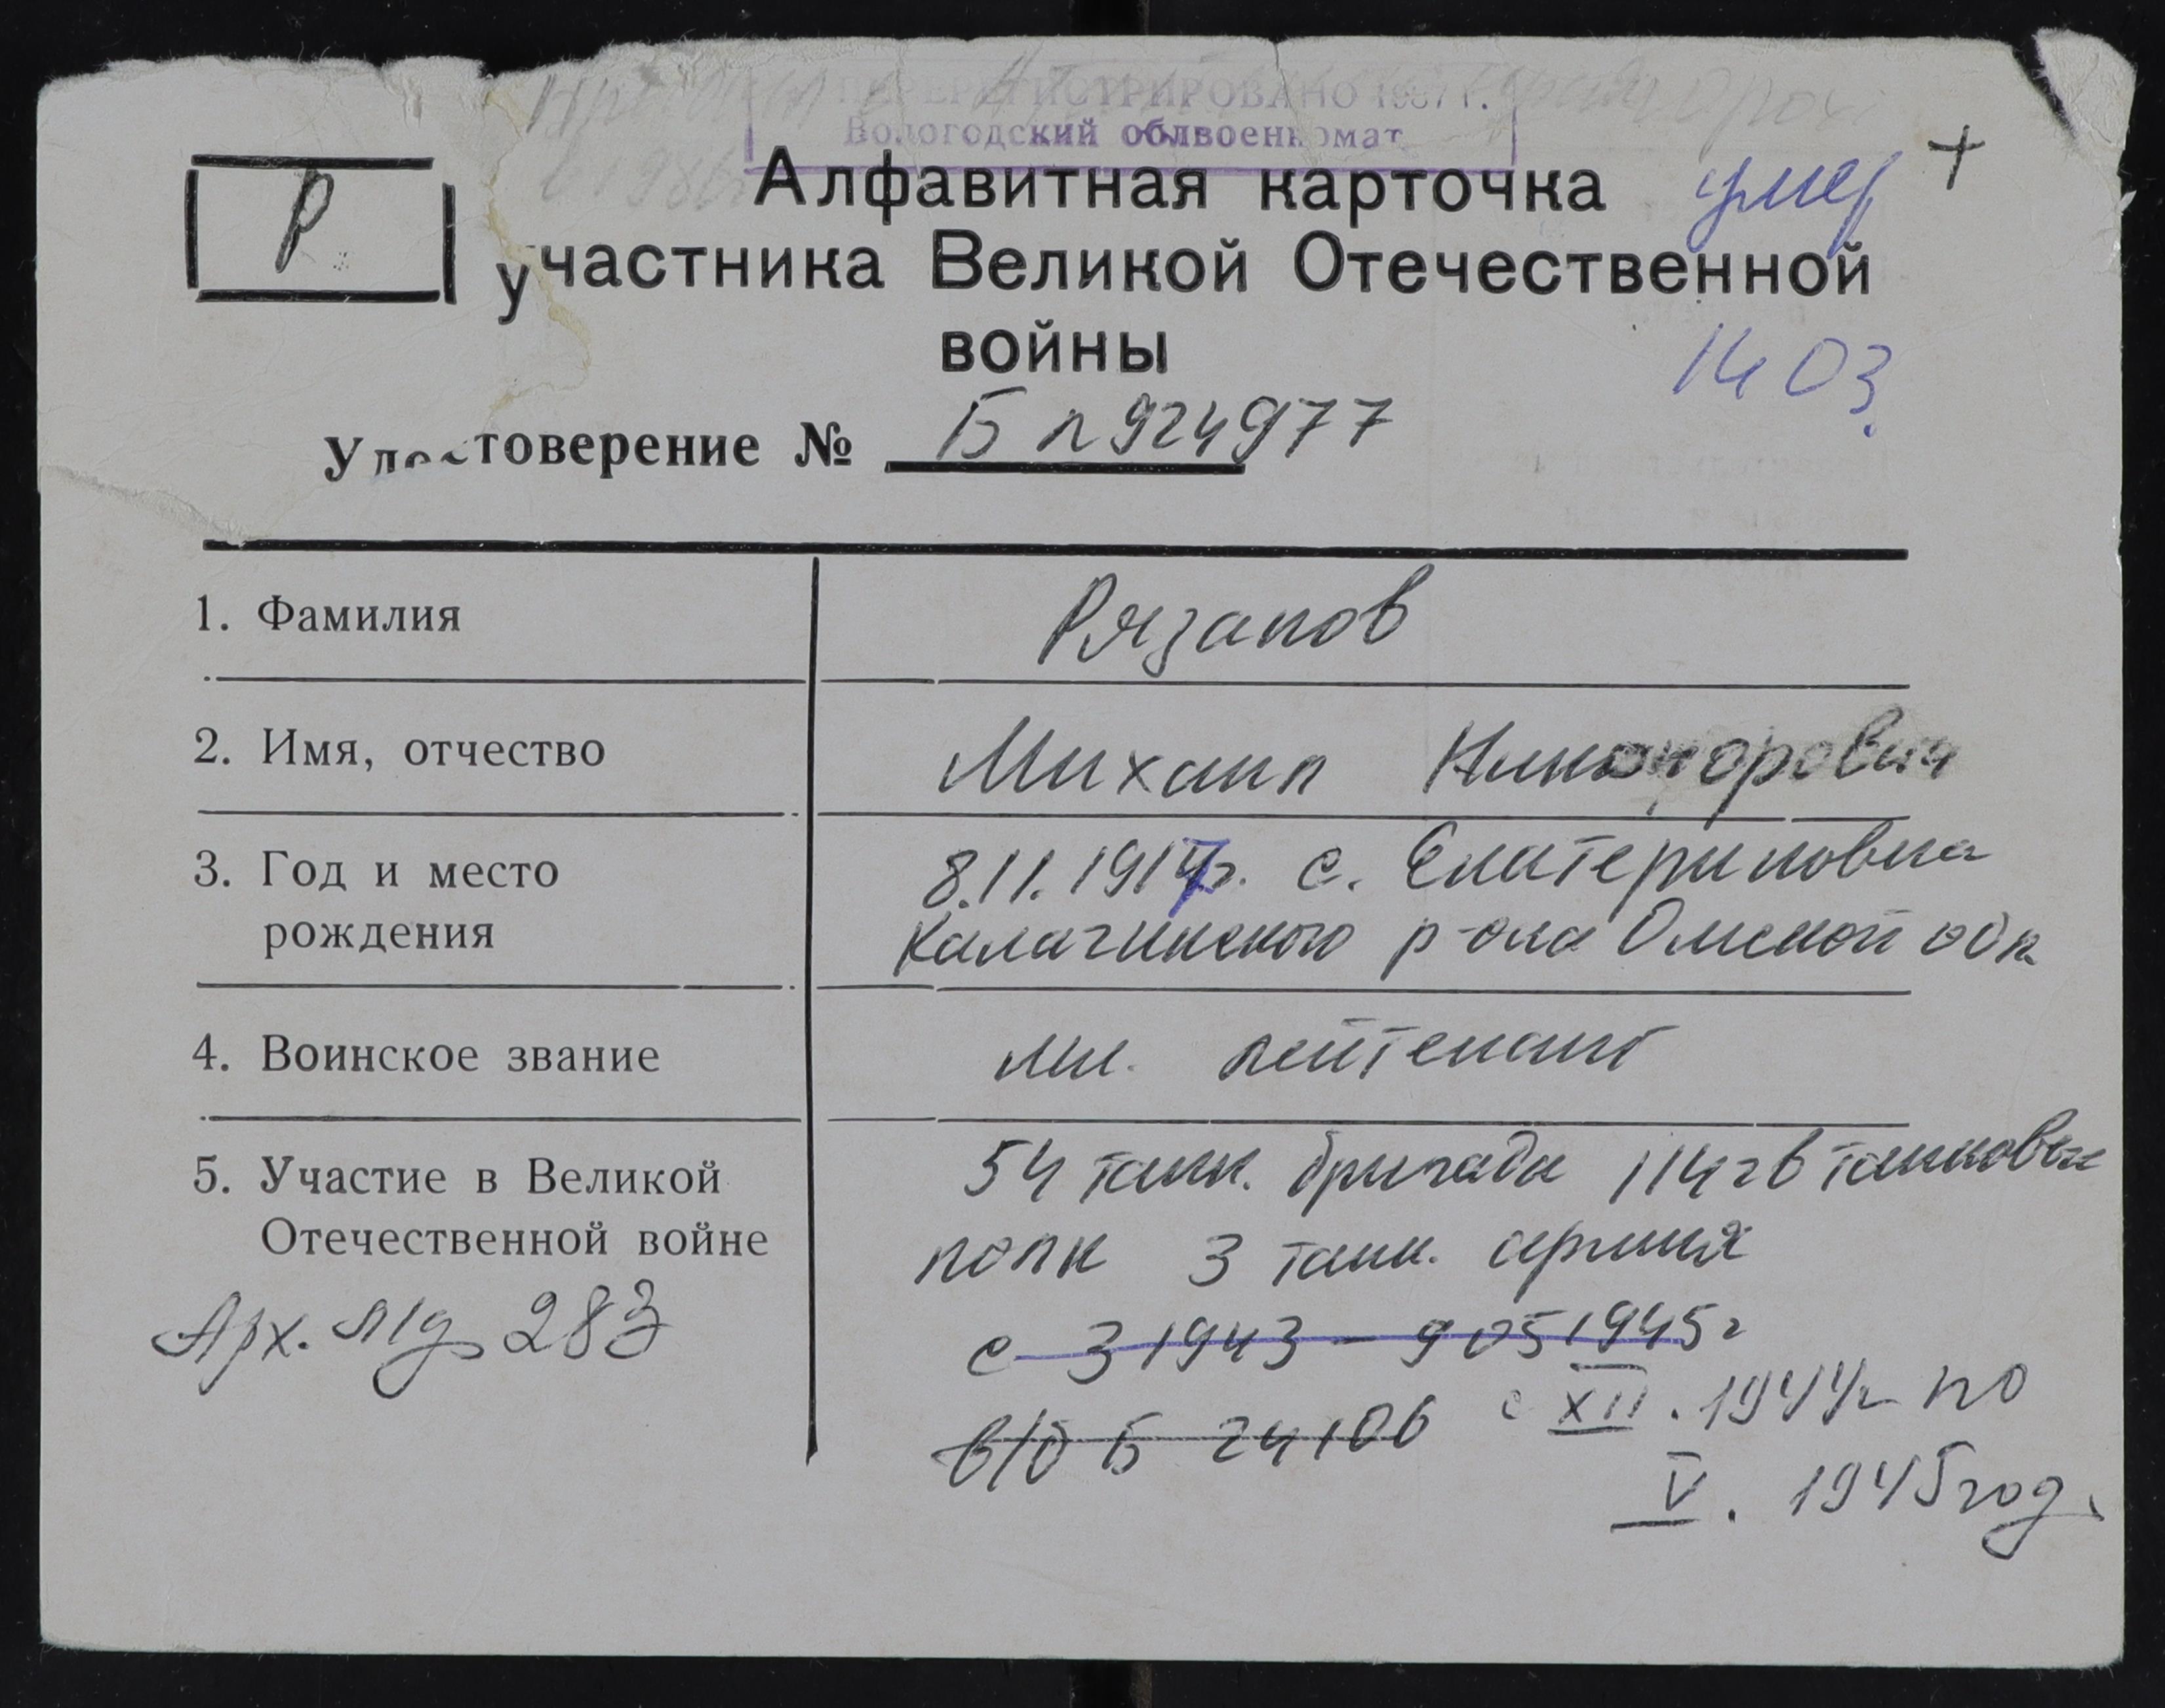 ПЕРЕРЕГИСТРИРОВАНО 1987 г.
Вологодский облвоенкомат
Р
Алфавитная карточка
умер +
участника Великой Отечественной
войны
14 03
Удостоверение № Б № 924977
1. Фамилия Рязанов
2. Имя, отчество Михаил Никонорович
3. Год и место 8.11.1917г. с. Екатериновка
рождения Калачинского р-она Омской обл
4. Воинское звание мл. лейтенант
5. Участие в Великой 54 танк. бригада 114 гв танковый
Отечественной войне полк 3 танк. армия
Арх. 283
с 3 1943 – 9 05 1945 г
с XII. 1944г по
24106
V. 1945 год.